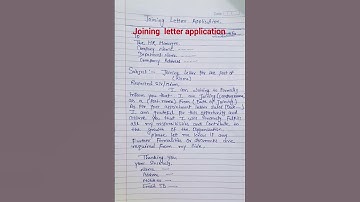 Joining Letter Application.
Joining letter application
To
The HR Manager
Company name
Department Name
Company Address
Subject:- Joining Letter for the Post of
(Name)
Respected Sir/Mam
I am writing to formally
inform you that I am joining (Company name)
as a (Post name) from (Date of joining).
As per your appointment letter dated (Date)
I am grateful for this opportunity and
assure you that I will sincerely fulfill
all my responsibilities and contribute to
the growth of the Organization.
Please let me know if any
further formalities or documents are
required from my side.
Thanking you
your Sincerely,
Name
Address
Mobile no
Email ID